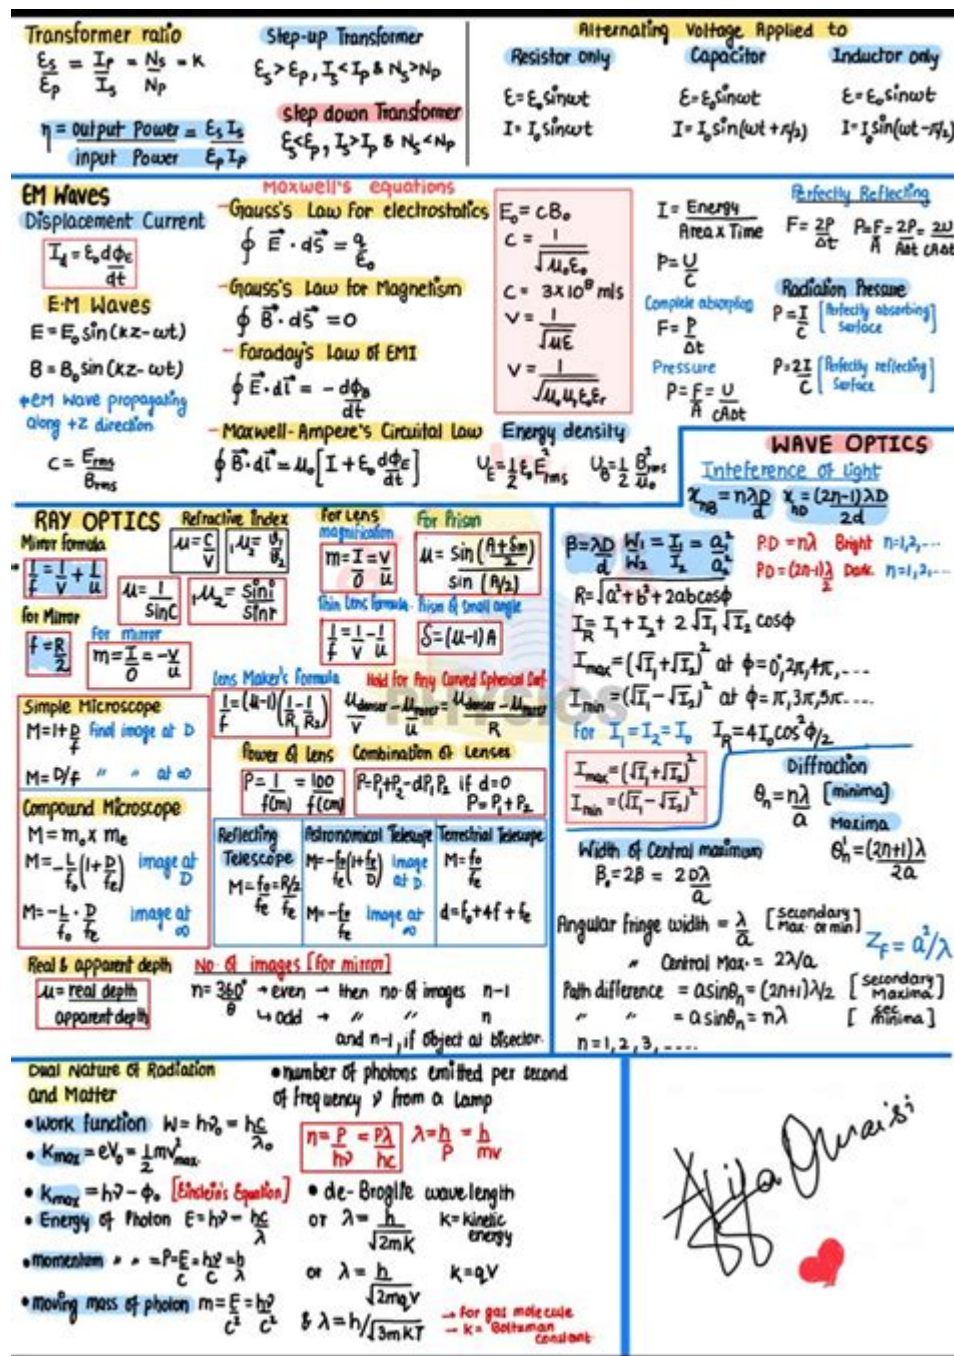 Transformer ratio
εs/εp = Ip/Is = Ns/Np = K
η = output Power/input Power = εs Is/εp Ip
Step-up Transformer
εs > εp, Is < Ip & Ns > Np
step down Transformer
εs < εp, Is > Ip & Ns < Np
Alternating Voltage Applied to
Resistor only
ε = ε₀ sinωt
I = I₀ sinωt
Capacitor
ε = ε₀ sinωt
I = I₀ sin(ωt + π/2)
Inductor only
ε = ε₀ sinωt
I = I₀ sin(ωt - π/2)
EM Waves
Displacement Current
I_d = ε₀ dϕ_E/dt
E·M Waves
E = E₀ sin(kz - ωt)
B = B₀ sin(kz - ωt)
*EM wave propagating
along +z direction
C = Erms/Brms
Maxwell's equations
- Gauss's Law for electrostatics
∮ E⃗ · dS⃗ = q/ε₀
- Gauss's Law for Magnetism
∮ B⃗ · dS⃗ = 0
- Faraday's Law of EMI
∮ E⃗ · dl⃗ = - dϕ_B/dt
- Maxwell-Ampere's Circuital Law
∮ B⃗ · dl⃗ = μ₀[I + ε₀ dϕ_E/dt]
E₀ = cB₀
C = 1/√μ₀ε₀
C = 3×10⁸ m/s
V = 1/√με
V = 1/√μ₀μrε₀εr
Energy density
U_E = 1/2 ε₀ E²rms
U_B = 1/2 B²rms/μ₀
I = Energy/Area x Time
P = U/C
Complete absorption
F = P/Δt
Pressure
P = F/A = U/cAΔt
Perfectly Reflecting
F = 2P/Δt P = F/A = 2P/AΔt = 2U/cAΔt
Radiation Pressure
P = I/C [Perfectly absorbing Surface]
P = 2I/C [Perfectly reflecting Surface]
WAVE OPTICS
Inteference of light
x_nB = nλD/d x_nD = (2n-1)λD/2d
β = λD/d W₁/W₂ = I₁/I₂ = a₁²/a₂²
P.D = nλ Bright n=1,2,...
PD = (2n-1)λ/2 Dark. n=1,2,...
R = √a² + b² + 2abcosϕ
I_R = I₁ + I₂ + 2√I₁ √I₂ cosϕ
Imax = (√I₁ + √I₂)² at ϕ = 0°, 2π, 4π, ....
Imin = (√I₁ - √I₂)² at ϕ = π, 3π, 5π....
for I₁ = I₂ = I₀ I_R = 4I₀ cos² ϕ/2
Imax/Imin = (√I₁ + √I₂)²/(√I₁ - √I₂)²
Diffraction
θn = nλ/a [minima]
Maxima
θ'n = (2n+1)λ/2a
Width of Central maximum
β₀ = 2β = 2Dλ/a
Angular fringe width = λ/a [Secondary Max. or min]
" Central Max. = 2λ/a
Z_F = a²/λ
Path difference = asinθn = (2n+1)λ/2 [Secondary Maxima]
" " = asinθn = nλ [sec minima]
n = 1, 2, 3, ....
RAY OPTICS
Mirror formula
1/f = 1/v + 1/u
for Mirror
f = R/2
Refractive index
μ = C/V ₁μ₂ = v₁/v₂
μ = 1/sinC ₁μ₂ = sini/sinr
For mirror
m = I/O = -v/u
For Lens
magnification
m = I/O = v/u
Thin lens formula
1/f = 1/v - 1/u
For Prism
μ = sin((A+δm)/2)/sin(A/2)
Prism of small angle
δ = (μ-1)A
Lens Maker's Formula
1/f = (μ-1)(1/R₁ - 1/R₂)
Hold for Any Curved Spherical Surf
μdenser/v - μrarer/u = μdenser - μrarer/R
Power of Lens
P = 1/f(m) = 100/f(cm)
Combination of Lenses
P = P₁ + P₂ - dP₁P₂ if d = 0
P = P₁ + P₂
PHYSICS
Simple Microscope
M = 1 + D/f Final image at D
M = D/f " " at ∞
Compound Microscope
M = m₀ x me
M = -L/f₀(1 + D/fe) image at D
M = -L/f₀ · D/fe image at ∞
Reflecting Telescope
M = f₀/fe = R/2/fe
Astronomical Telescope
M = -f₀/fe(1 + fe/D) Image at D.
M = -f₀/fe Image at ∞
Terrestrial Telescope
M = f₀/fe
d = f₀ + 4f + fe
Real & apparent depth
μ = real depth/apparent depth
No. of images [for mirror]
n = 360°/θ → even → then no. of images n-1
↳ odd → " " n
and n-1, if object at bisector.
Dual Nature of Radiation
and Matter
• Work function W = hν₀ = hc/λ₀
• Kmax = eV₀ = 1/2 mv²max.
• Kmax = hν - ϕ₀ [Einstein's Equation]
• Energy of Photon E = hν = hc/λ
• momentum " " = P = E/C = hν/C = h/λ
• moving mass of photon m = E/C² = hν/C²
• number of photons emitted per second
of frequency ν from a Lamp
n = P/hν = Pλ/hc λ = h/P = h/mv
• de-Broglie wavelength
or λ = h/√2mK K = kinetic energy
or λ = h/√2mqV K = qV
& λ = h/√3mKT → For gas molecule
→ K = Boltzman constant